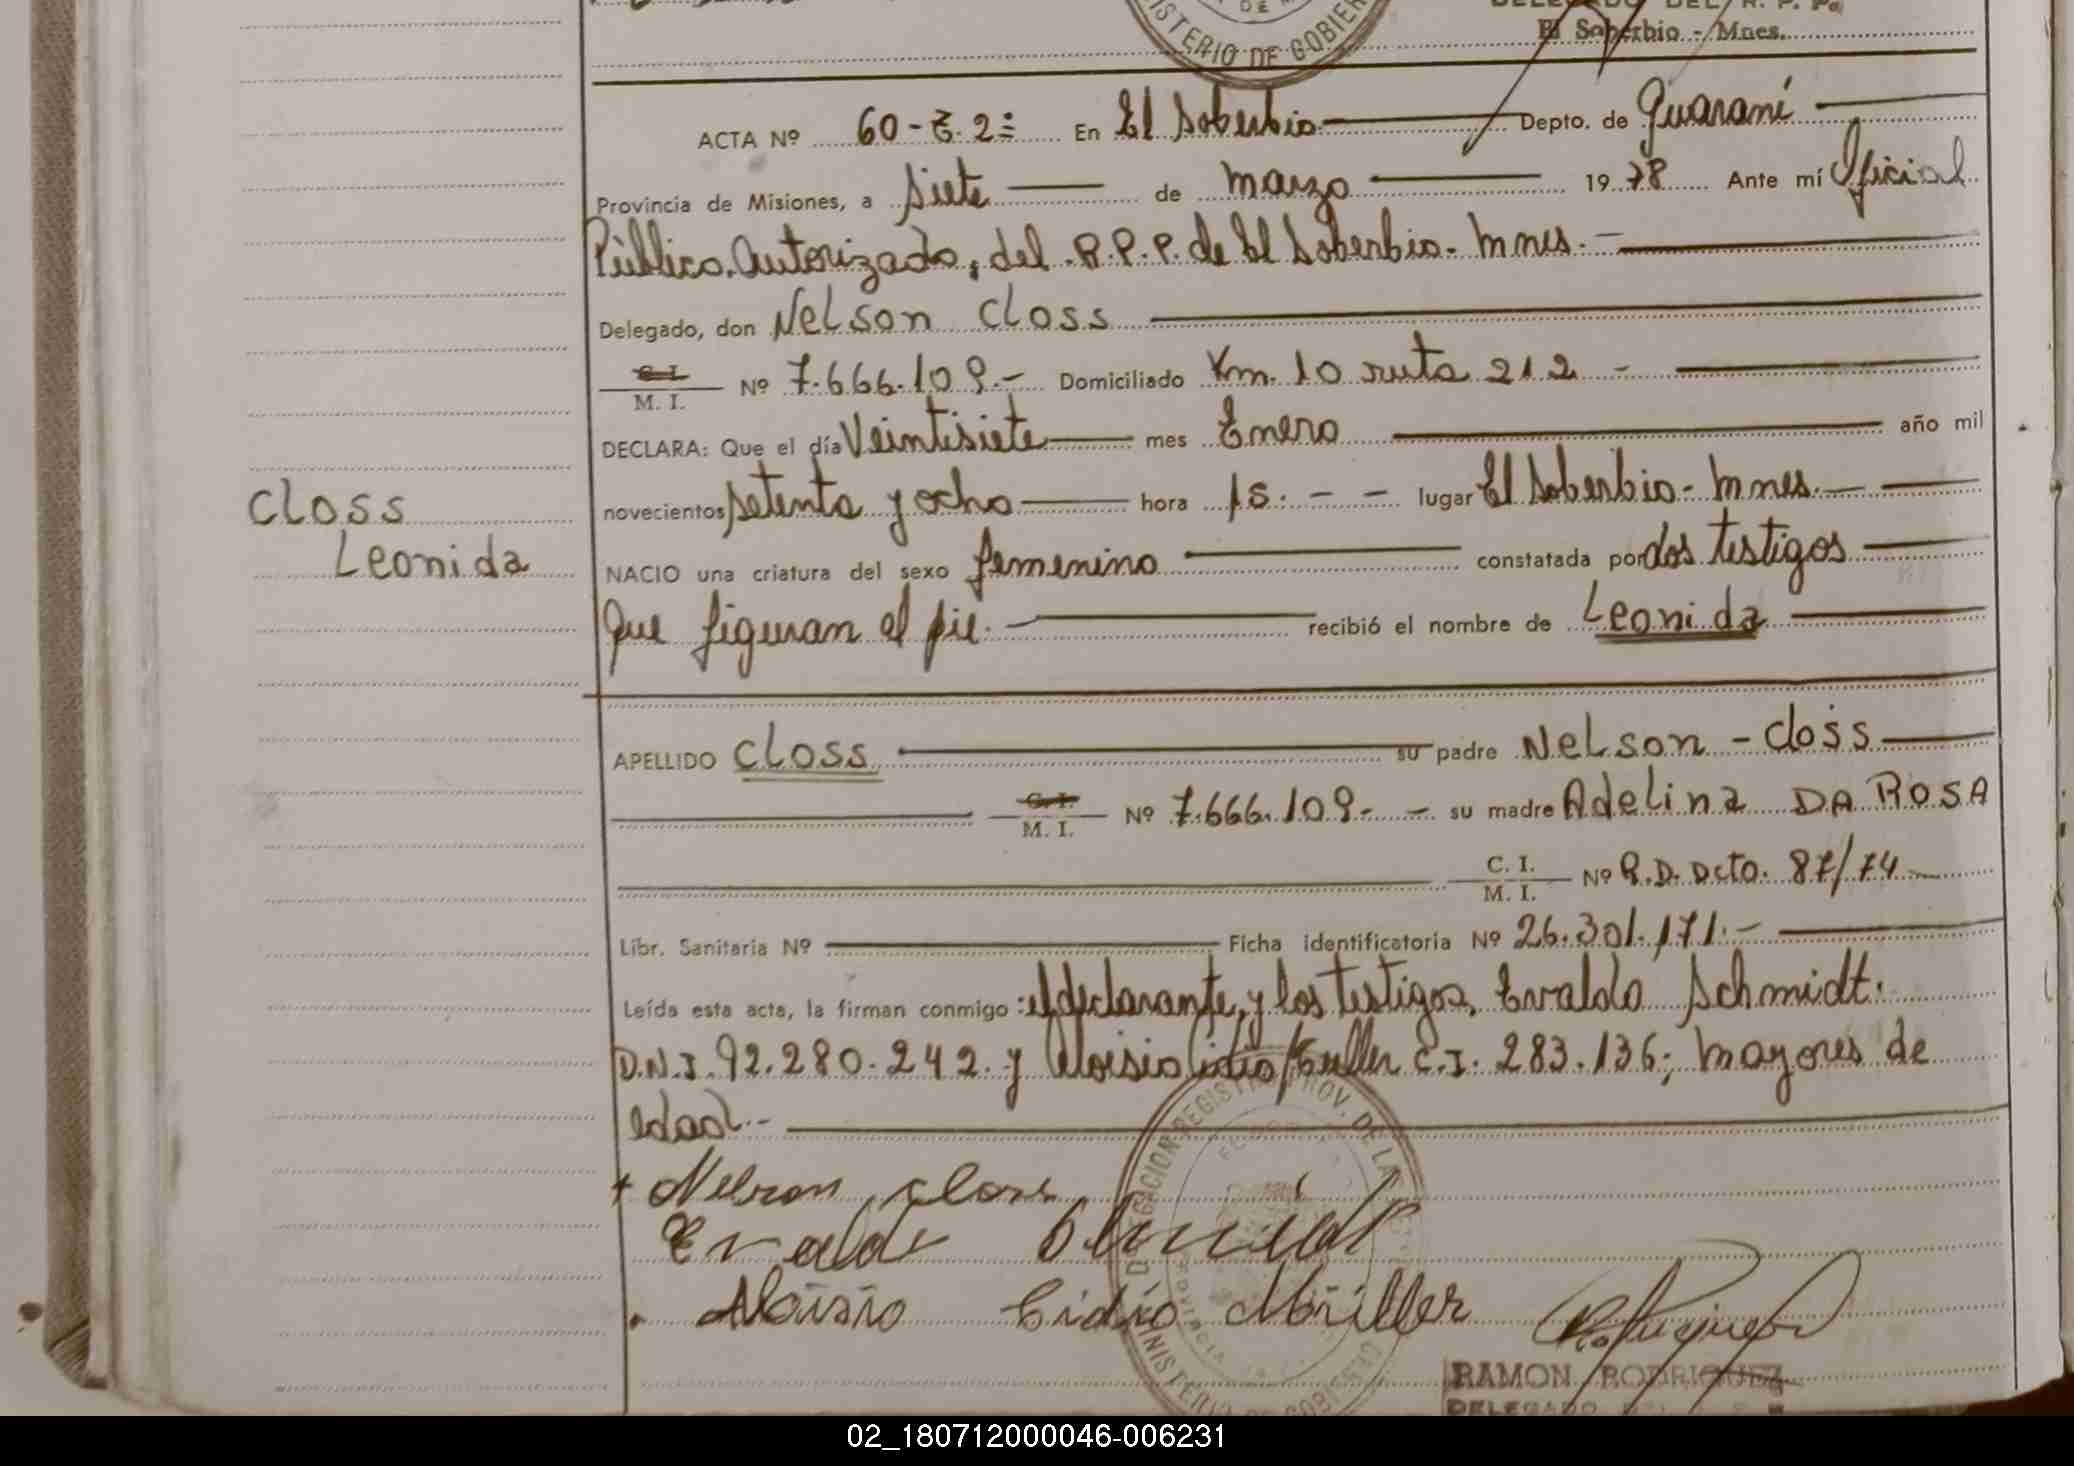 DELEGADO DEL R. P. P.
El Soberbio - Mnes.
MINISTERIO DE GOBIERNO
ACTA Nº 60 - T. 2º En El Soberbio Depto. de Guaraní
Provincia de Misiones, a siete de marzo 1978 Ante mí Oficial
Público Autorizado, del R.P.P. de El Soberbio - Mnes. -
Delegado, don Nelson Closs
C. I.
M. I. Nº 7.666.109.- Domiciliado Km. 10 ruta 212 -
DECLARA: Que el día Veintisiete mes Enero año mil
novecientos setenta y ocho hora 15. - - lugar El Soberbio - Mnes. -
Closs
Leonida
NACIO una criatura del sexo femenino constatada por dos testigos
Que figuran el pie. - recibió el nombre de Leonida
APELLIDO Closs su padre Nelson - Closs
C. I.
M. I. Nº 7.666.109.- - su madre Adelina DA ROSA
C. I.
M. I. Nº R.D. Dcto. 87/74
Libr. Sanitaria Nº Ficha identificatoria Nº 26.301.171.-
Leída esta acta, la firman conmigo: el declarante, y los testigos, Evaldo Schmidt.
D.N.I. 92.280.242. y Aloisio Cidio Muller C.I. 283.136; mayores de
edad.-
+ Nelson Closs
Evaldo Schmidt
Aloisio Cidio Müller
DELEGACION REGISTRO PROV. DE LAS
MINISTERIO DE GOBIERNO
RAMON RODRIGUEZ
DELEGADO
02_180712000046-006231